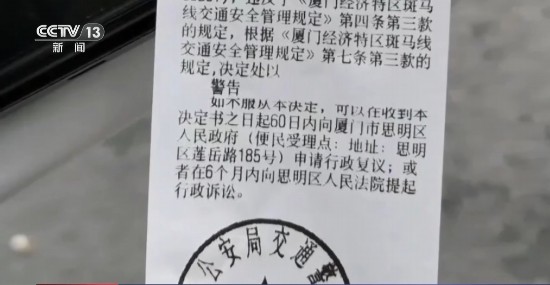 CCTV 13
新闻
《厦门经济特区斑马
线交通安全管理规定》第四条第三款
的规定，根据《厦门经济特区斑马线
交通安全管理规定》第七条第三款的
规定,决定处以
警告
如不服从本决定，可以在收到本
决定书之日起60日内向厦门市思明区
人民政府（便民受理点：地址：思明
区莲岳路185号）申请行政复议；或
者在6个月内向思明区人民法院提起
行政诉讼。
公安局交通警